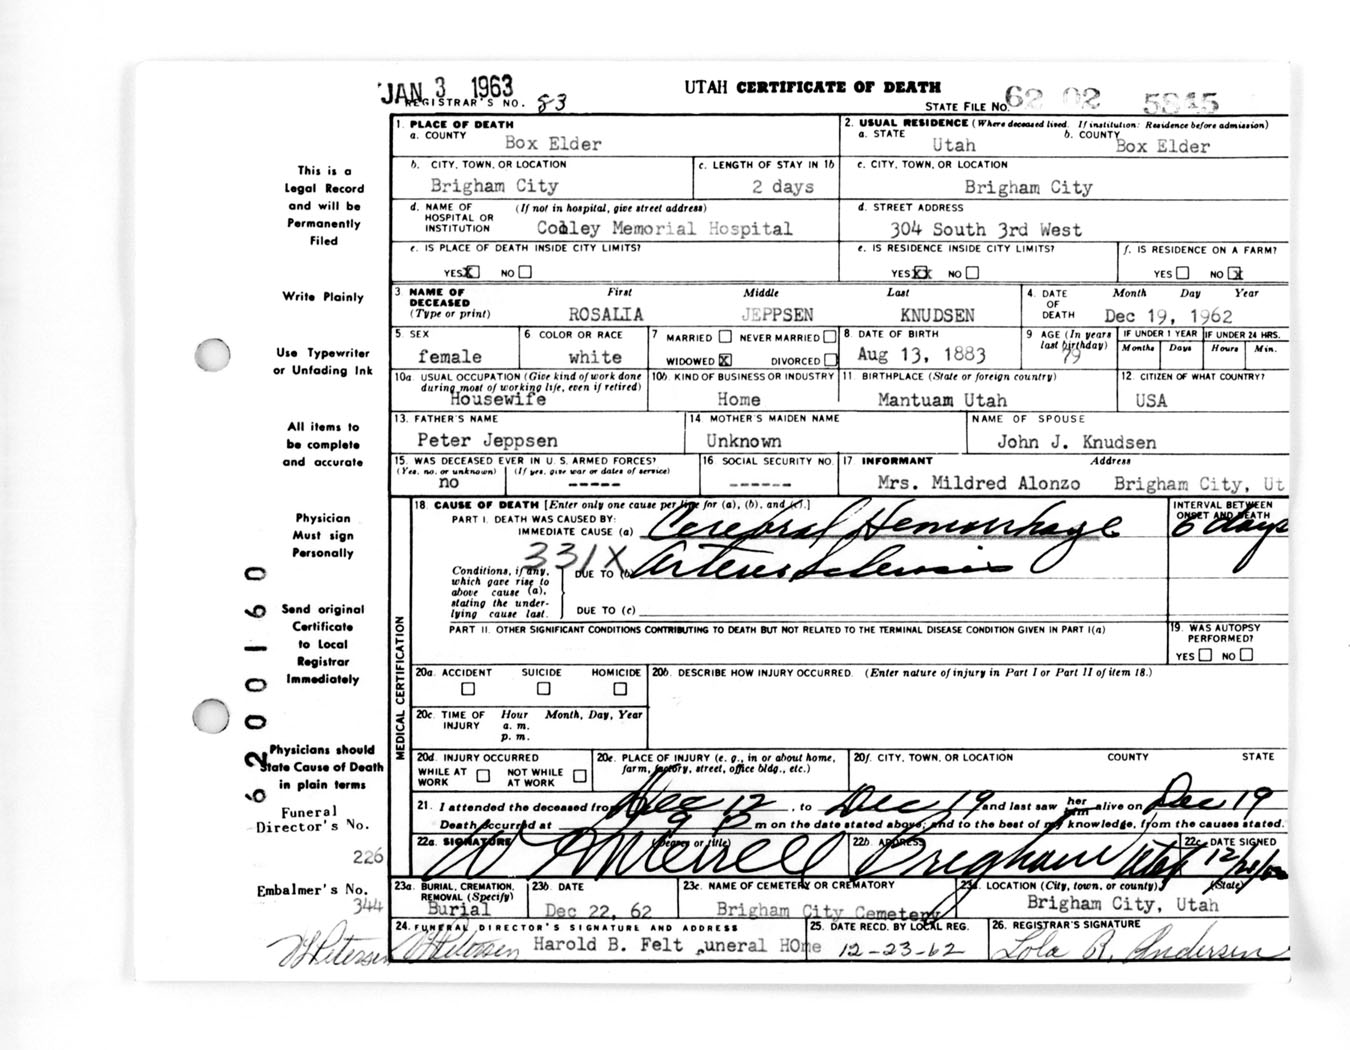 JAN 3 1963
UTAH CERTIFICATE OF DEATH
REGISTRAR'S NO. 83
STATE FILE NO. 62 02 5845
1. PLACE OF DEATH
a. COUNTY
Box Elder
2. USUAL RESIDENCE (Where deceased lived. If institution: Residence before admission)
a. STATE b. COUNTY
Utah Box Elder
b. CITY, TOWN, OR LOCATION
Brigham City
c. LENGTH OF STAY IN 1b
2 days
c. CITY, TOWN, OR LOCATION
Brigham City
d. NAME OF HOSPITAL OR INSTITUTION (If not in hospital, give street address)
Cooley Memorial Hospital
d. STREET ADDRESS
304 South 3rd West
e. IS PLACE OF DEATH INSIDE CITY LIMITS?
YES X NO
e. IS RESIDENCE INSIDE CITY LIMITS?
YES XX NO
f. IS RESIDENCE ON A FARM?
YES NO X
3. NAME OF DECEASED (Type or print)
First Middle Last
ROSALIA JEPPSEN KNUDSEN
4. DATE OF DEATH
Month Day Year
Dec 19, 1962
5 SEX
female
6 COLOR OR RACE
white
7 MARRIED NEVER MARRIED
WIDOWED X DIVORCED
8 DATE OF BIRTH
Aug 13, 1883
9 AGE (In years last birthday)
79
IF UNDER 1 YEAR IF UNDER 24 HRS.
Months Days Hours Min.
10a. USUAL OCCUPATION (Give kind of work done during most of working life, even if retired)
Housewife
10b. KIND OF BUSINESS OR INDUSTRY
Home
11 BIRTHPLACE (State or foreign country)
Mantuam Utah
12. CITIZEN OF WHAT COUNTRY?
USA
13. FATHER'S NAME
Peter Jeppsen
14 MOTHER'S MAIDEN NAME
Unknown
NAME OF SPOUSE
John J. Knudsen
15. WAS DECEASED EVER IN U.S. ARMED FORCES?
(Yes, no, or unknown) (If yes, give war or dates of service)
no -----
16 SOCIAL SECURITY NO.
------
17 INFORMANT Address
Mrs. Mildred Alonzo Brigham City, Ut
18. CAUSE OF DEATH [Enter only one cause per line for (a), (b), and (c).]
PART I. DEATH WAS CAUSED BY:
IMMEDIATE CAUSE (a) Cerebral Hemorrhage
INTERVAL BETWEEN ONSET AND DEATH
6 days
331X
Conditions, if any, which gave rise to above cause (a), stating the underlying cause last.
DUE TO (b) Arteriosclerosis
DUE TO (c)
PART II. OTHER SIGNIFICANT CONDITIONS CONTRIBUTING TO DEATH BUT NOT RELATED TO THE TERMINAL DISEASE CONDITION GIVEN IN PART I(a)
19. WAS AUTOPSY PERFORMED?
YES NO
MEDICAL CERTIFICATION
20a. ACCIDENT SUICIDE HOMICIDE
20b. DESCRIBE HOW INJURY OCCURRED. (Enter nature of injury in Part I or Part II of item 18.)
20c. TIME OF INJURY Hour Month, Day, Year
a. m.
p. m.
20d. INJURY OCCURRED
WHILE AT WORK NOT WHILE AT WORK
20e. PLACE OF INJURY (e. g., in or about home, farm, factory, street, office bldg., etc.)
20f. CITY, TOWN, OR LOCATION COUNTY STATE
21. I attended the deceased from Dec 12, to Dec 19 and last saw her him alive on Dec 19
Death occurred at 9 P m on the date stated above; and to the best of my knowledge, from the causes stated.
22a. SIGNATURE (Degree or title)
W Merrell
22b. ADDRESS
Brigham Utah
22c. DATE SIGNED
23a. BURIAL, CREMATION, REMOVAL (Specify)
Burial
23b. DATE
Dec 22, 62
23c. NAME OF CEMETERY OR CREMATORY
Brigham City Cemetery
23d. LOCATION (City, town, or county) (State)
Brigham City, Utah
24. FUNERAL DIRECTOR'S SIGNATURE AND ADDRESS
Petersen Harold B. Felt uneral HOme
25. DATE RECD. BY LOCAL REG.
12-23-62
26. REGISTRAR'S SIGNATURE
Lola R. Andersen
This is a
Legal Record
and will be
Permanently
Filed
Write Plainly
Use Typewriter
or Unfading Ink
All items to
be complete
and accurate
Physician
Must sign
Personally
Send original
Certificate
to Local
Registrar
Immediately
Physicians should
State Cause of Death
in plain terms
62000160
Funeral
Director's No.
226
Embalmer's No.
344
Petersen